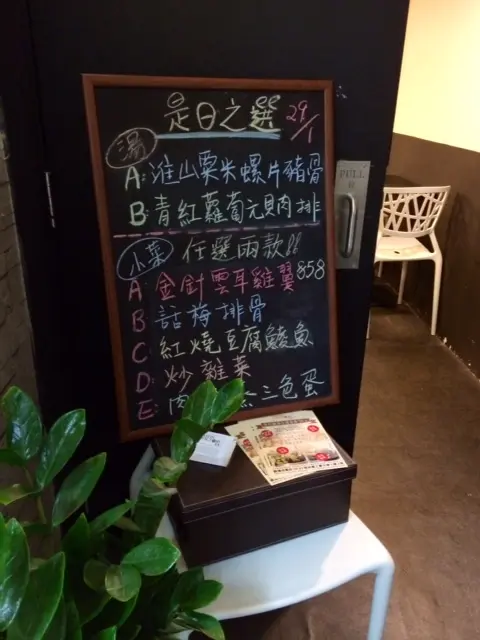 是日之選 29/1
湯
A: 淮山粟米螺片豬骨
B: 青紅蘿蔔元貝肉排
小菜 任選兩款!!
A 金針雲耳雞翼 $58
B 話梅排骨
C: 紅燒豆腐鯪魚
D: 炒雜菜
E: 肉 三色蛋
PULL